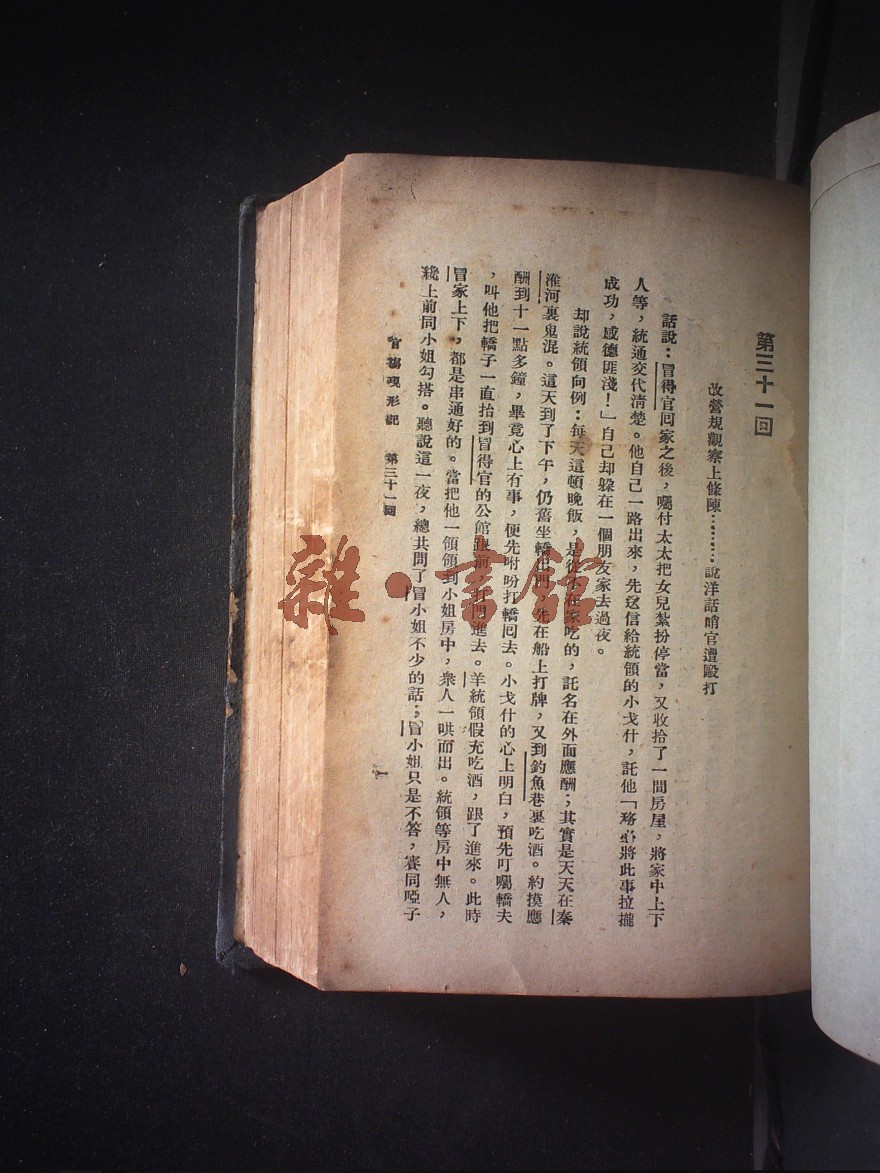 第三十一回
改營規觀察上條陳………說洋話哨官遭毆打
話說：冒得官回家之後，囑付太太把女兒紮扮停當，又收拾了一間房屋，將家中上下
人等，統通交代清楚。他自己一路出來，先送信給統領的小戈什，託他「務必將此事拉攏
成功，感德匪淺！」自己却躲在一個朋友家去過夜。
却說統領向例：每天這頓晚飯，是從不在家吃的，託名在外面應酬；其實是天天在秦
淮河裏鬼混。這天到了下午，仍舊坐轎出門，先在船上打牌，又到釣魚巷裏吃酒。約摸應
酬到十一點多鐘，畢竟心上有事，便先咐吩打轎回去。小戈什的心上明白，預先叮囑轎夫
，叫他把轎子一直抬到冒得官的公館跟前，打門進去。羊統領假充吃酒，跟了進來。此時
冒家上下，都是串通好的。當把他一領領到小姐房中，衆人一哄而出。統領等房中無人，
纔上前同小姐勾搭。聽說這一夜，總共問了冒小姐不少的話；冒小姐只是不答，賽同啞子
官場現形記　第三十一回
雜·書館